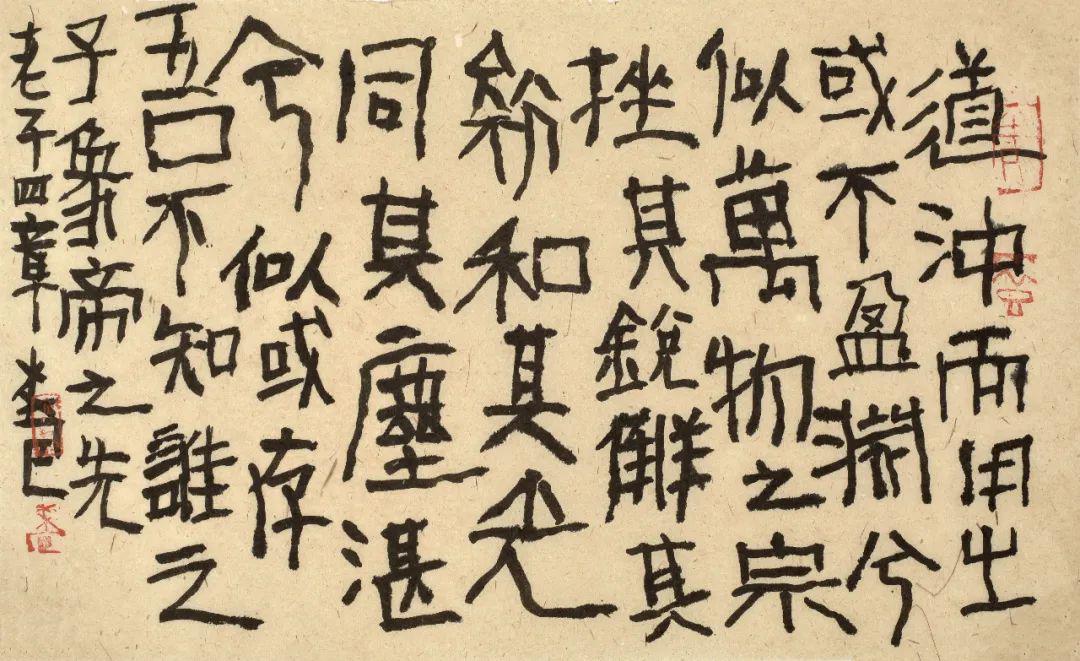 道沖而用之
或不盈淵兮
似萬物之宗
挫其銳解其
紛和其光
同其塵湛
兮似或存
吾不知誰之
子象帝之先
老子四章